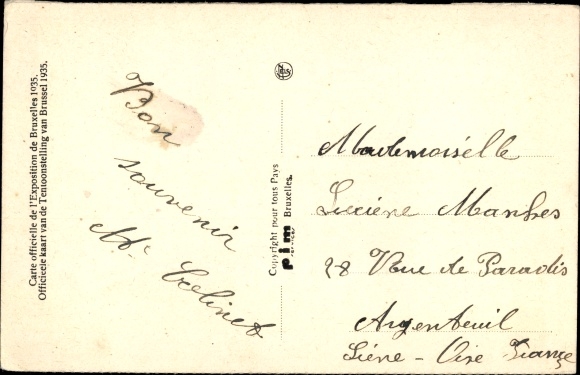 Carte officielle de l'Exposition de Bruxelles 1935.
Officieele kaart van de Tentoonstelling van Brussel 1935.
Bon
souvenir
Copyright pour tous Pays
pim Bruxelles.
Mademoiselle
Luciene
28 Rue de Paradis
Argenteuil
Seine - Oise France